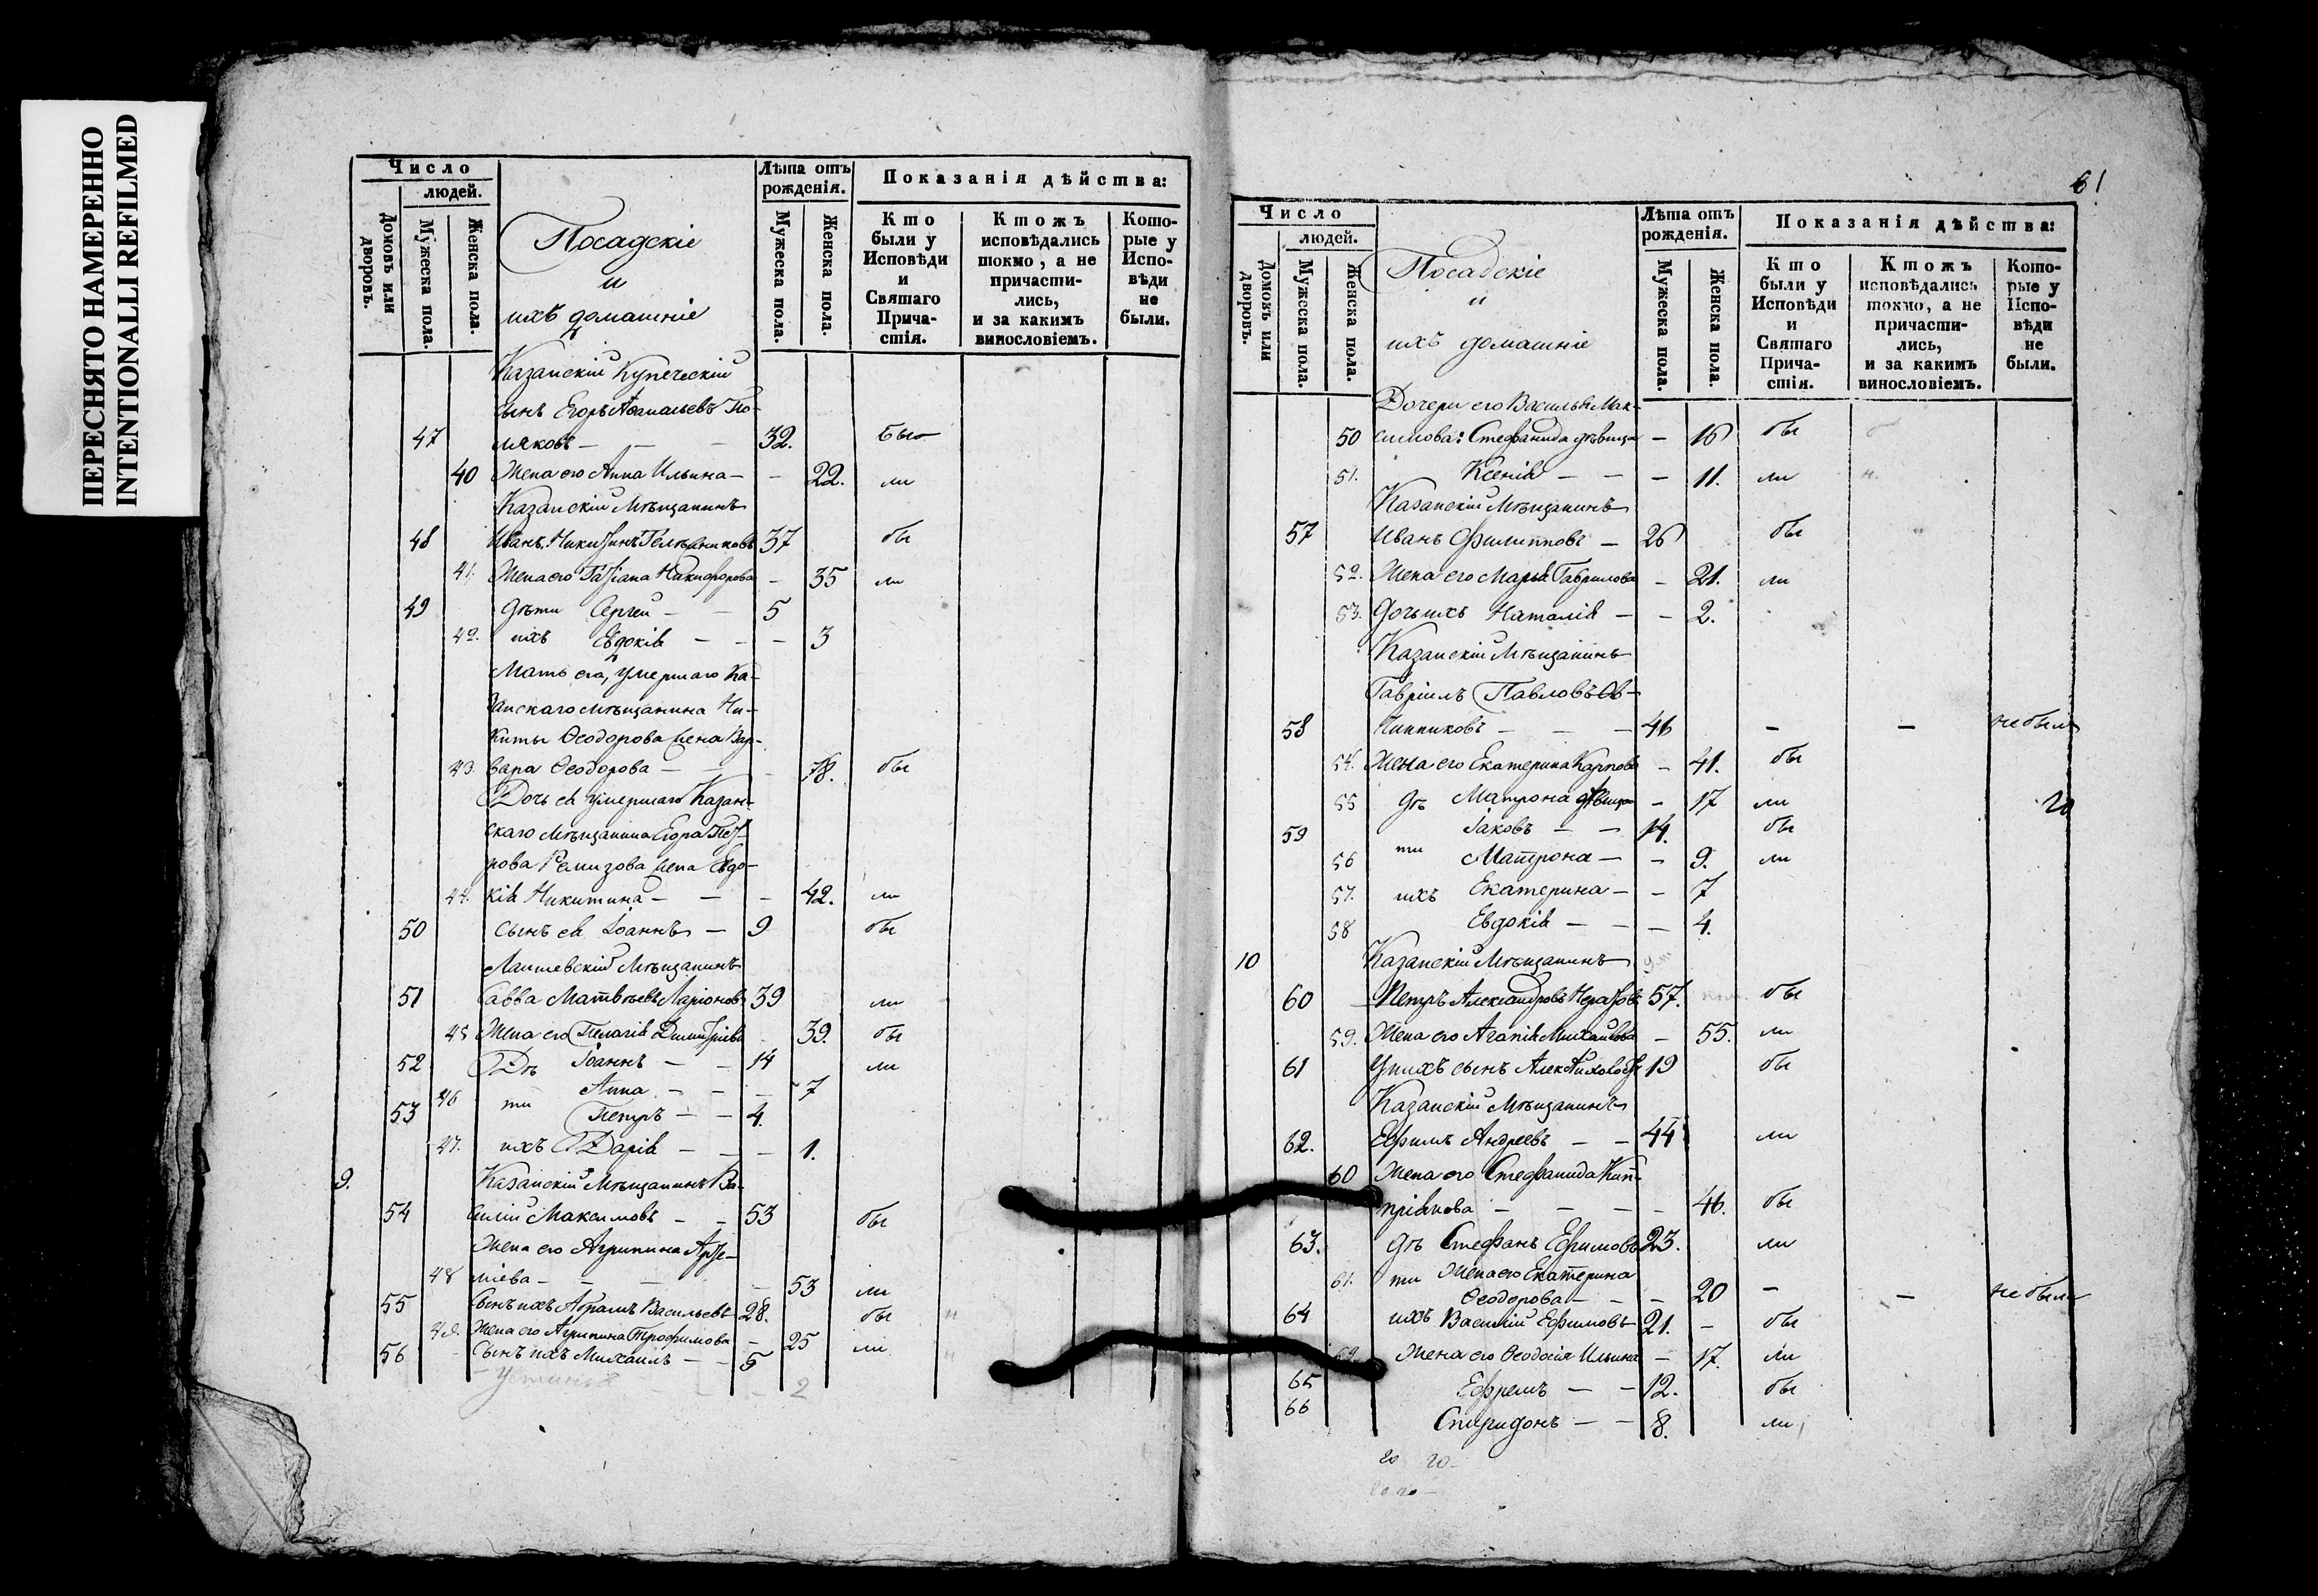 ПЕРЕСНЯТО НАМЕРЕННО
INTENTIONALLI REFILMED
Число
людей.
Домовъ или дворовъ.
Мужеска пола.
Женска пола.
Посадскіе
и
ихъ домашніе
Лѣта отъ рожденія.
Мужеска пола.
Женска пола.
Показанія дѣйства:
Кто были у Исповѣди и Святаго Прича-стія.
Ктожъ исповѣдались токмо, а не причасти-лись, и за какимъ винословіемъ.
Кото-рые у Испо-вѣди не были.
Казанскій Купеческій
сынъ Егоръ Афанасьевъ По-
47 ляковъ — — — 32. Бы
40 Жена его Анна Ильина — — 22. ли
Казанскій Мѣщанинъ
48 Иванъ Никитинъ 37 бы
41. Жена его Татіана Никифорова — 35 ли
49 дѣти Сергей — — 5
42. ихъ Евдокія — — — 3
Мать его, умершаго Ка-
занскаго мѣщанина Ни-
киты Ѳеодорова жена Вар-
43. вара Ѳеодорова — — 78. бы
Дочь ея умершаго Казан-
скаго мѣщанина Егора Пет-
рова Ремизова жена Евдо-
44. кія Никитина — — — 42. ли
50 Сынъ ея Іоаннъ — 9 бы
Лаишевскій Мѣщанинъ
51 Савва Матвѣевъ Ларіоновъ 39 ли
45 Жена его Пелагія Димитріева 39. бы
52 Дѣ Іоаннъ — — 14 ли
46 ти Анна — — — 7
53 Петръ — — 4.
47. ихъ Дарія — — — 1.
9. Казанскій Мѣщанинъ Ва-
54 силій Максимовъ — — 53 бы
Жена его Агрипина Арте-
48 міева — — — — 53 ли
55 Сынъ ихъ Абрамъ Васильевъ 28. бы
49. Жена его Агрипина Трофимова — 25 ли
56 Сынъ ихъ Михаилъ — — 5
— — — 2
61
Число
людей.
Домовъ или дворовъ.
Мужеска пола.
Женска пола.
Посадскіе
и
ихъ домашніе
Лѣта отъ рожденія.
Мужеска пола.
Женска пола.
Показанія дѣйства:
Кто были у Исповѣди и Святаго Прича-стія.
Ктожъ исповѣдались токмо, а не причасти-лись, и за какимъ винословіемъ.
Кото-рые у Испо-вѣди не были.
Дочери его Василья Мак-
50 симова: Стефанида дѣвица — 16 бы
51. Ксенія — — — 11. ли
Казанскій Мѣщанинъ
57 Иванъ Филипповъ — 26 бы
52. Жена его Марья Гаврилова — 21. ли
53. Дочь ихъ Наталія — — 2.
Казанскій Мѣщанинъ
Гавріилъ Павловъ Ов-
58 чинниковъ — — — 46 — — не былъ
54. Жена его Екатерина Карпова — 41. бы
55 Дѣ Матрона дѣвица — 17 ли 20
59 Іаковъ — — 14. бы
56 ти Матрона — — 9. ли
57. ихъ Екатерина — — 7
58 Евдокія — — — 4.
10 Казанскій Мѣщанинъ
60 Петръ Александровъ 57. бы
59. Жена его Агапія Михайлова — 55. ли
61 У нихъ сынъ 19 бы
Казанскій Мѣщанинъ
62. Ефимъ Андреевъ — — 44 ли
60 Жена его Стефанида Кип-
ріянова — — — — 46. бы
63. Дѣ Стефанъ Ефимовъ 23. ли
61. ти Жена его Екатерина
Ѳеодорова — — — 20 — — не была
64 ихъ Василій Ефимовъ 21. — бы
62. Жена его Ѳеодосія Ильина — 17. ли
65 Ефремъ — — 12. бы
66 Спиридонъ — — 8. ли
20 20 —